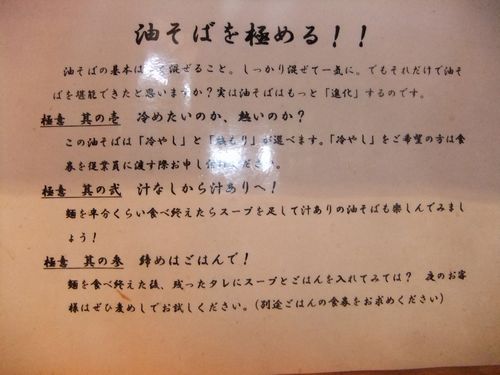 油そばを極める!!
油そばの基本は 混ぜること。しっかり混ぜて一気に。でもそれだけで油そ
ばを堪能できたと思いますか?実は油そばはもっと「進化」するのです。
極意 其の壱 冷めたいのか、熱いのか?
この油そばは「冷やし」と「熱もり」が選べます。「冷やし」をご希望の方は食
券を従業員に渡す際お申し ください。
極意 其の弐 汁なしから汁ありへ!
麺を半分くらい食べ終えたらスープを足して汁ありの油そばも楽しんでみまし
ょう!
極意 其の参 締めはごはんで!
麺を食べ終えた後、残ったタレにスープとごはんを入れてみては? 夜のお客
様はぜひ麦めしでお試しください。(別途ごはんの食券をお求めください)